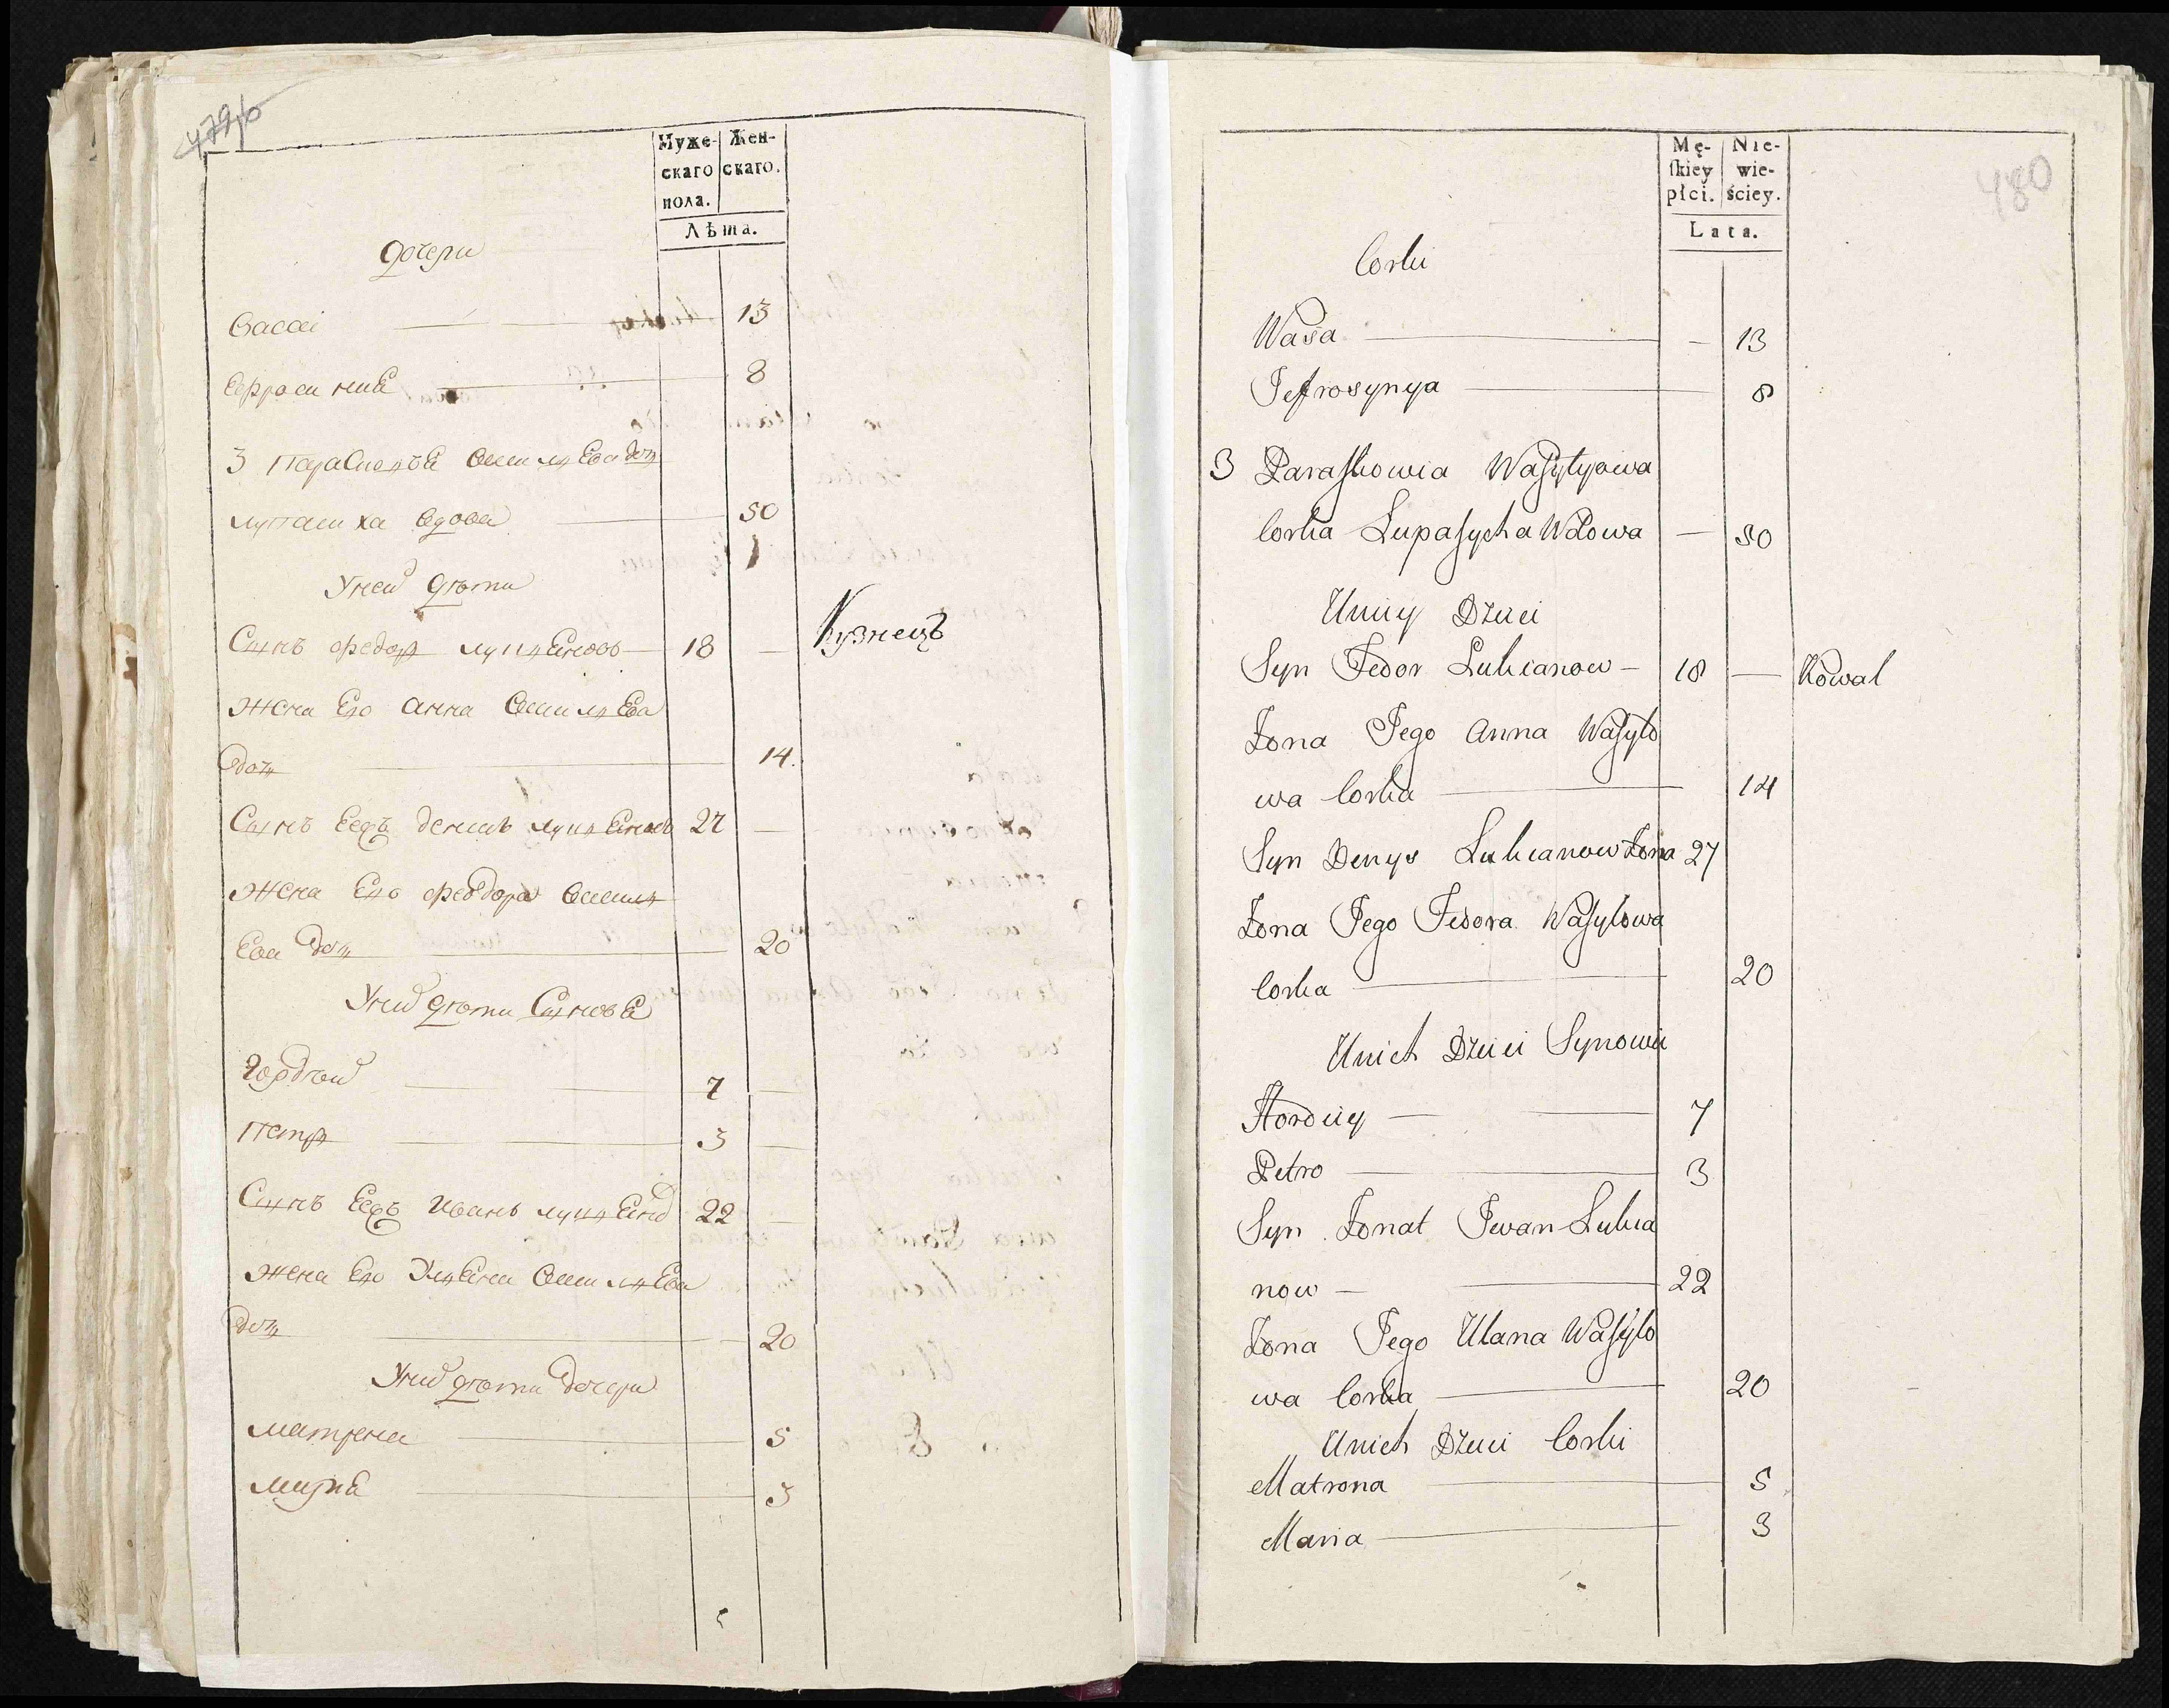 479об
Муже- Жен-
скаго скаго.
пола.
Лѣта.
Дочери
Васса 13
Ефросиния 8
3 Парасковья Василева доч
лупасиха вдова 50
Уней дѣти
Сынъ Федор лукяновъ 18 — Кузнецъ
жена Его Анна Василева
доч 14.
Сынъ Еѣ Денисъ лукяновъ 27 —
жена Его Феддора Васил
ева доч 20
Уних дѣти Сыновя
Гордѣй 7 —
Петр 3 —
Сынъ Еѣ Иванъ лукянов 22 —
жена Его Улянa Василева
доч 20
Уних дѣти дочери
Матрена 5
Мария 3
480
Mę- Nie-
skiey wie-
płci. ściey.
Lata.
Corki
Wasa — 13
Jefrosynya 8
3 Paraskowia Wasylyowa
Corka Lupasycha Wdowa — 50
Uniey Dzieci
Syn Fedor Lukianow — 18 — Kowal
Żona Jego Anna Wasylo
wa Corka 14
Syn Denys Lukianow Żona 27
Żona Jego Fedora Wasylowa
Corka 20
Unich Dzieci Synowie
Hordiey 7
Petro 3
Syn Żonat Iwan Lukia
now — 22
Żona Jego Ulana Wasylo
wa Corka 20
Unich Dzieci Corki
Matrona 5
Maria 3